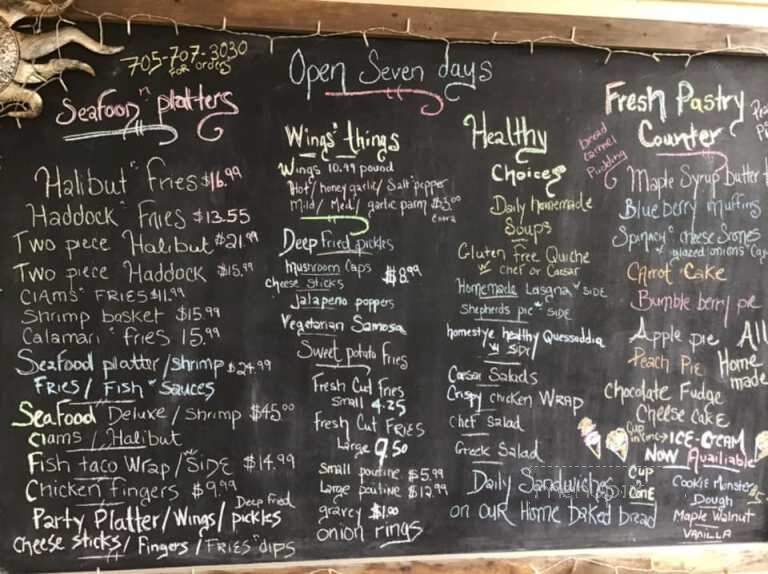 705-707-3030
for orders
Open Seven days
Seafood "n platters
Halibut "n Fries $16.99
Haddock "n Fries $13.55
Two piece Halibut $21.99
Two piece Haddock $15.99
Clams "n FRIES $11.99
Shrimp basket $15.99
Calamari "n fries 15.99
Seafood platter/shrimp $24.99
FRIES/Fish "n Sauces
Seafood Deluxe/Shrimp $45.00
Clams/Halibut
Fish taco Wrap/w SIDE $14.99
Chicken fingers $9.99
Deep fried
Party Platter/Wings/pickles
cheese sticks/Fingers/FRIES "n dips
Wings "n things
Wings 10.99 pound
Hot/honey garlic/Salt "n pepper
Mild/Med/garlic parm $3.00
extra
Deep Fried pickles
mushroom caps
cheese sticks $8.99
jalapeno poppers
Vegetarian Samosa
Sweet potato fries
Fresh Cut Fries
small 4.25
Fresh Cut FRIES
Large 9.50
Small poutine $5.99
Large poutine $12.99
gravey $1.00
onion rings
Healthy
Choices
Daily homemade
Soups
Gluten free Quiche
w chef or Caesar
Homemade Lasagna w SIDE
Shepherds pie w SIDE
homestye healthy Quessaddia
w SIDE/
Caesar Salads
Crispy chicken WRAP
Chef Salad
Greek Salad
Daily Sandwiches
on our Home baked bread
Fresh Pastry
Counter
bread
carmel
Pudding
Maple Syrup butter t
Blueberry muffins
Spinach "n cheese Scones
glazed onions
Carrot Cake
Bumble berry pie
Apple pie
Peach Pie
All
Home
made
Chocolate Fudge
Cheese cake
Cup
ICE-CREAM
NOW Availiable
CUP
CONE
Cookie Monster
Dough
Maple Walnut
VANILLA